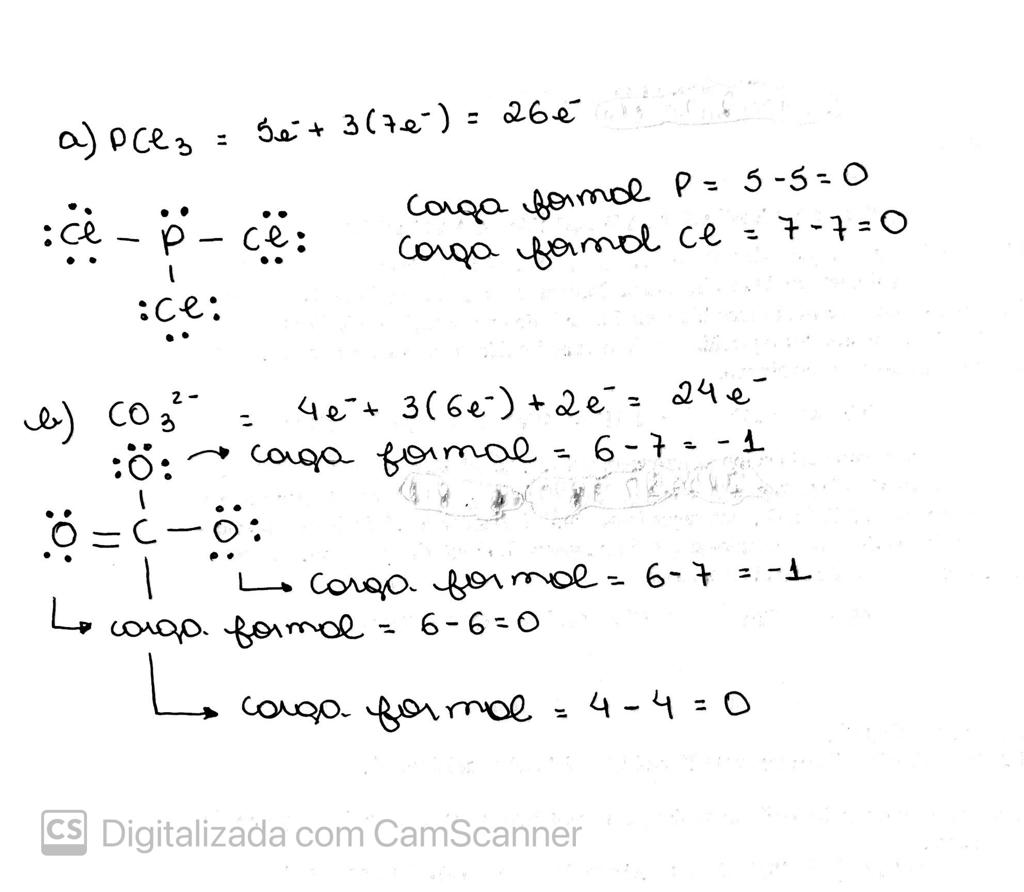 a) PCl₃ = 5e⁻ + 3(7e⁻) = 26e⁻
carga formal P = 5 - 5 = 0
:Cl – P – Cl:
carga formal Cl = 7 - 7 = 0
:Cl:
b) CO₃²⁻ = 4e⁻ + 3(6e⁻) + 2e⁻ = 24e⁻
:O: → carga formal = 6 - 7 = -1
O = C – O:
↳ carga formal = 6 - 7 = -1
↳ carga formal = 6 - 6 = 0
↳ carga formal = 4 - 4 = 0
CS Digitalizada com CamScanner